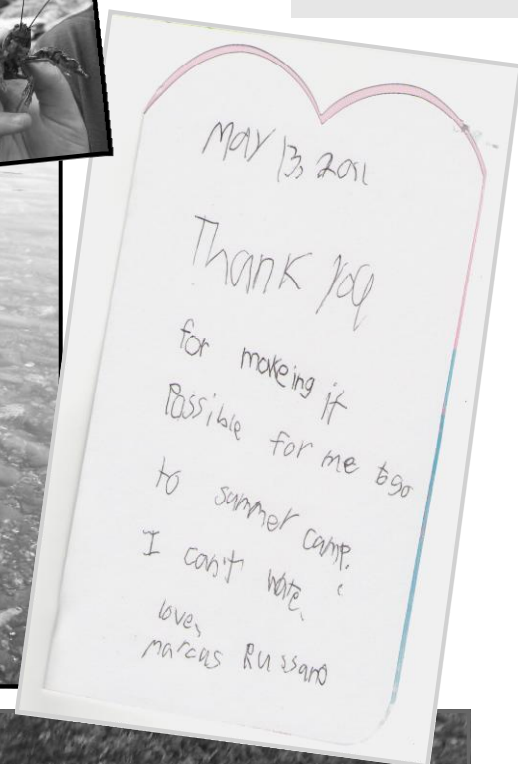 May 13, 2011
Thank you
for makeing it
Possible for me to go
to summer camp.
I can't wate.
love,
marcus Russano